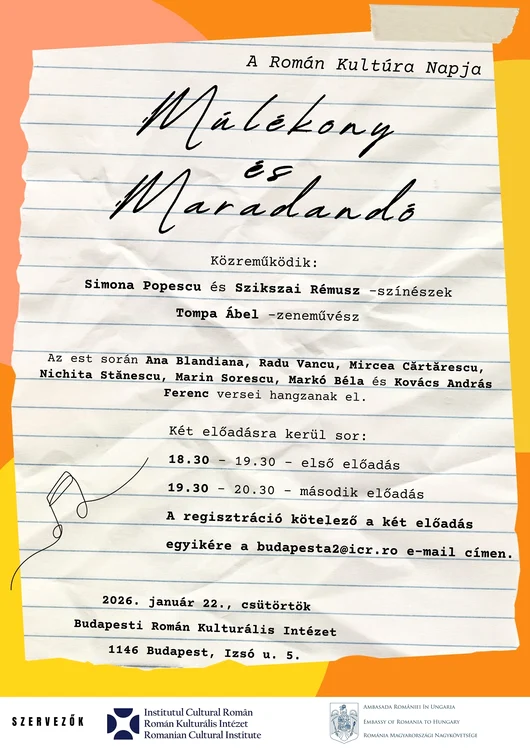 A Román Kultúra Napja
Múlékony
és
Maradandó
Közreműködik:
Simona Popescu és Szikszai Rémusz -színészek
Tompa Ábel -zeneművész
Az est során Ana Blandiana, Radu Vancu, Mircea Cărtărescu,
Nichita Stănescu, Marin Sorescu, Markó Béla és Kovács András
Ferenc versei hangzanak el.
Két előadásra kerül sor:
18.30 - 19.30 - első előadás
19.30 - 20.30 - második előadás
A regisztráció kötelező a két előadás
egyikére a budapesta2@icr.ro e-mail címen.
2026. január 22., csütörtök
Budapesti Román Kulturális Intézet
1146 Budapest, Izsó u. 5.
SZERVEZŐK
Institutul Cultural Român
Román Kulturális Intézet
Romanian Cultural Institute
AMBASADA ROMÂNIEI ÎN UNGARIA
EMBASSY OF ROMANIA TO HUNGARY
ROMÁNIA MAGYARORSZÁGI NAGYKÖVETSÉGE